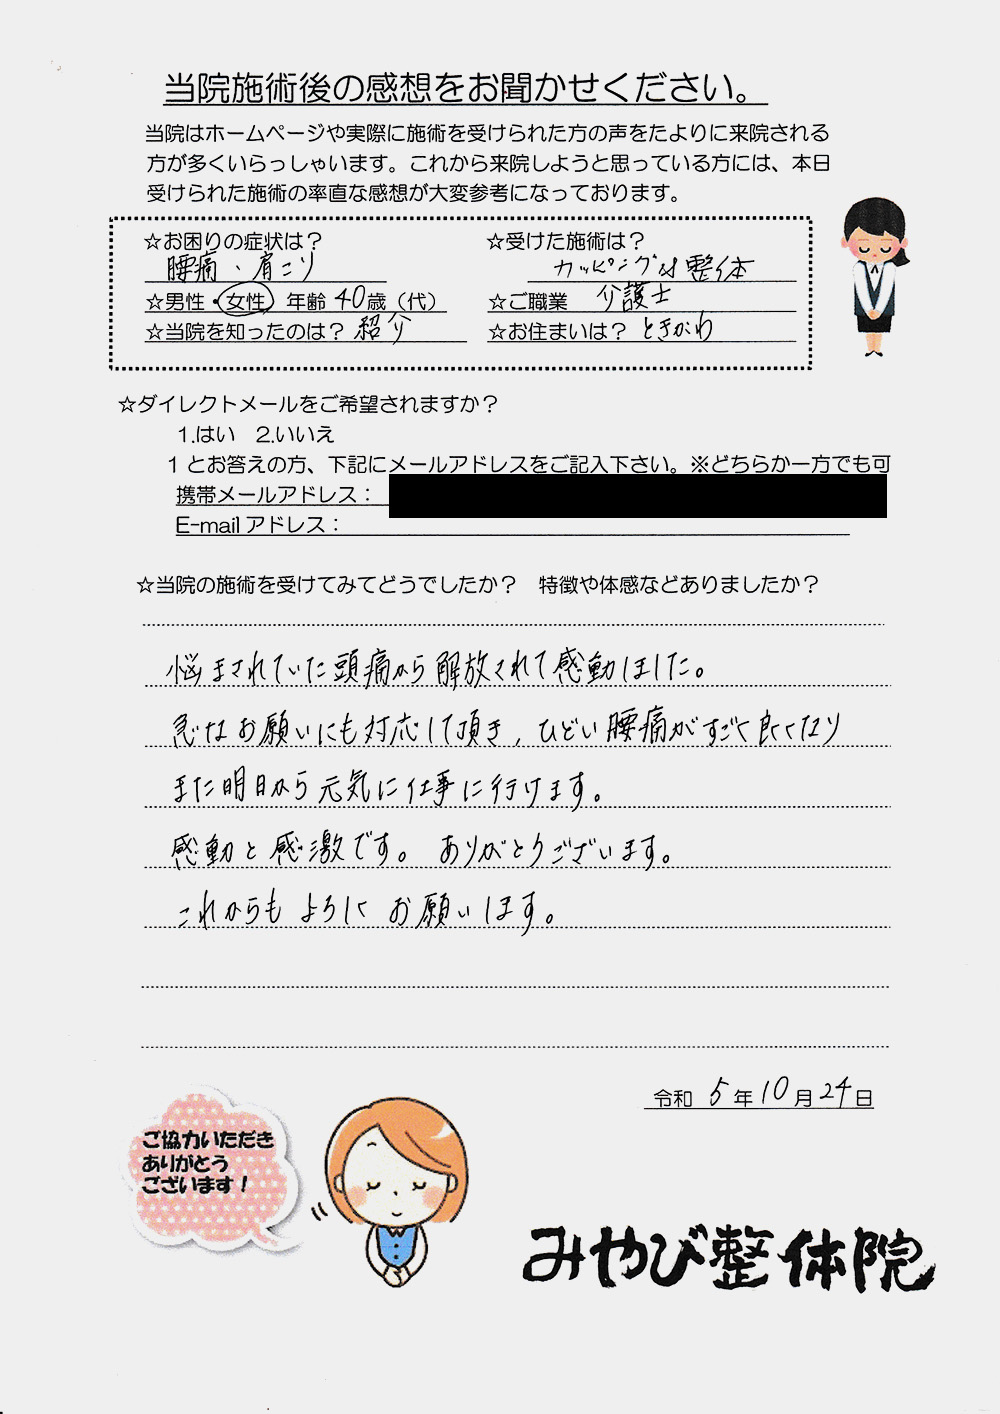 当院施術後の感想をお聞かせください。
当院はホームページや実際に施術を受けられた方の声をたよりに来院される
方が多くいらっしゃいます。これから来院しようと思っている方には、本日
受けられた施術の率直な感想が大変参考になっております。
☆お困りの症状は？
腰痛、肩こり
☆受けた施術は？
カッピング付整体
☆男性・女性 年齢 40歳（代）
☆ご職業 介護士
☆当院を知ったのは？ 紹介
☆お住まいは？ ときがわ
☆ダイレクトメールをご希望されますか？
1.はい 2.いいえ
1とお答えの方、下記にメールアドレスをご記入下さい。※どちらか一方でも可
携帯メールアドレス：
E-mailアドレス：
☆当院の施術を受けてみてどうでしたか？ 特徴や体感などありましたか？
悩まされていた頭痛から解放されて感動しました。
急なお願いにも対応して頂き、ひどい腰痛がすごく良くなり
また明日から元気に仕事に行けます。
感動と感激です。ありがとうございます。
これからもよろしくお願いします。
令和 5年10月24日
ご協力いただき
ありがとう
ございます！
みやび整体院